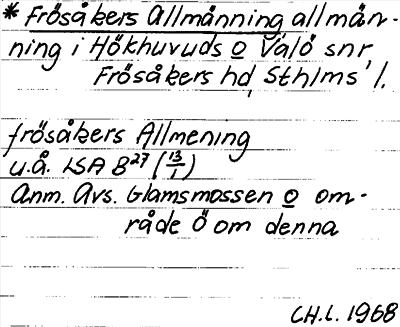 * Frösåkers Allmänning allmän-
ning i Hökhuvuds o Valö snr
Frösåkers hd, Sthlms l.
frösåkers Allmening
u.å. LSA B27 (13/1)
Anm. Avs. Glamsmossen o om-
råde Ö om denna
CH.L. 1968